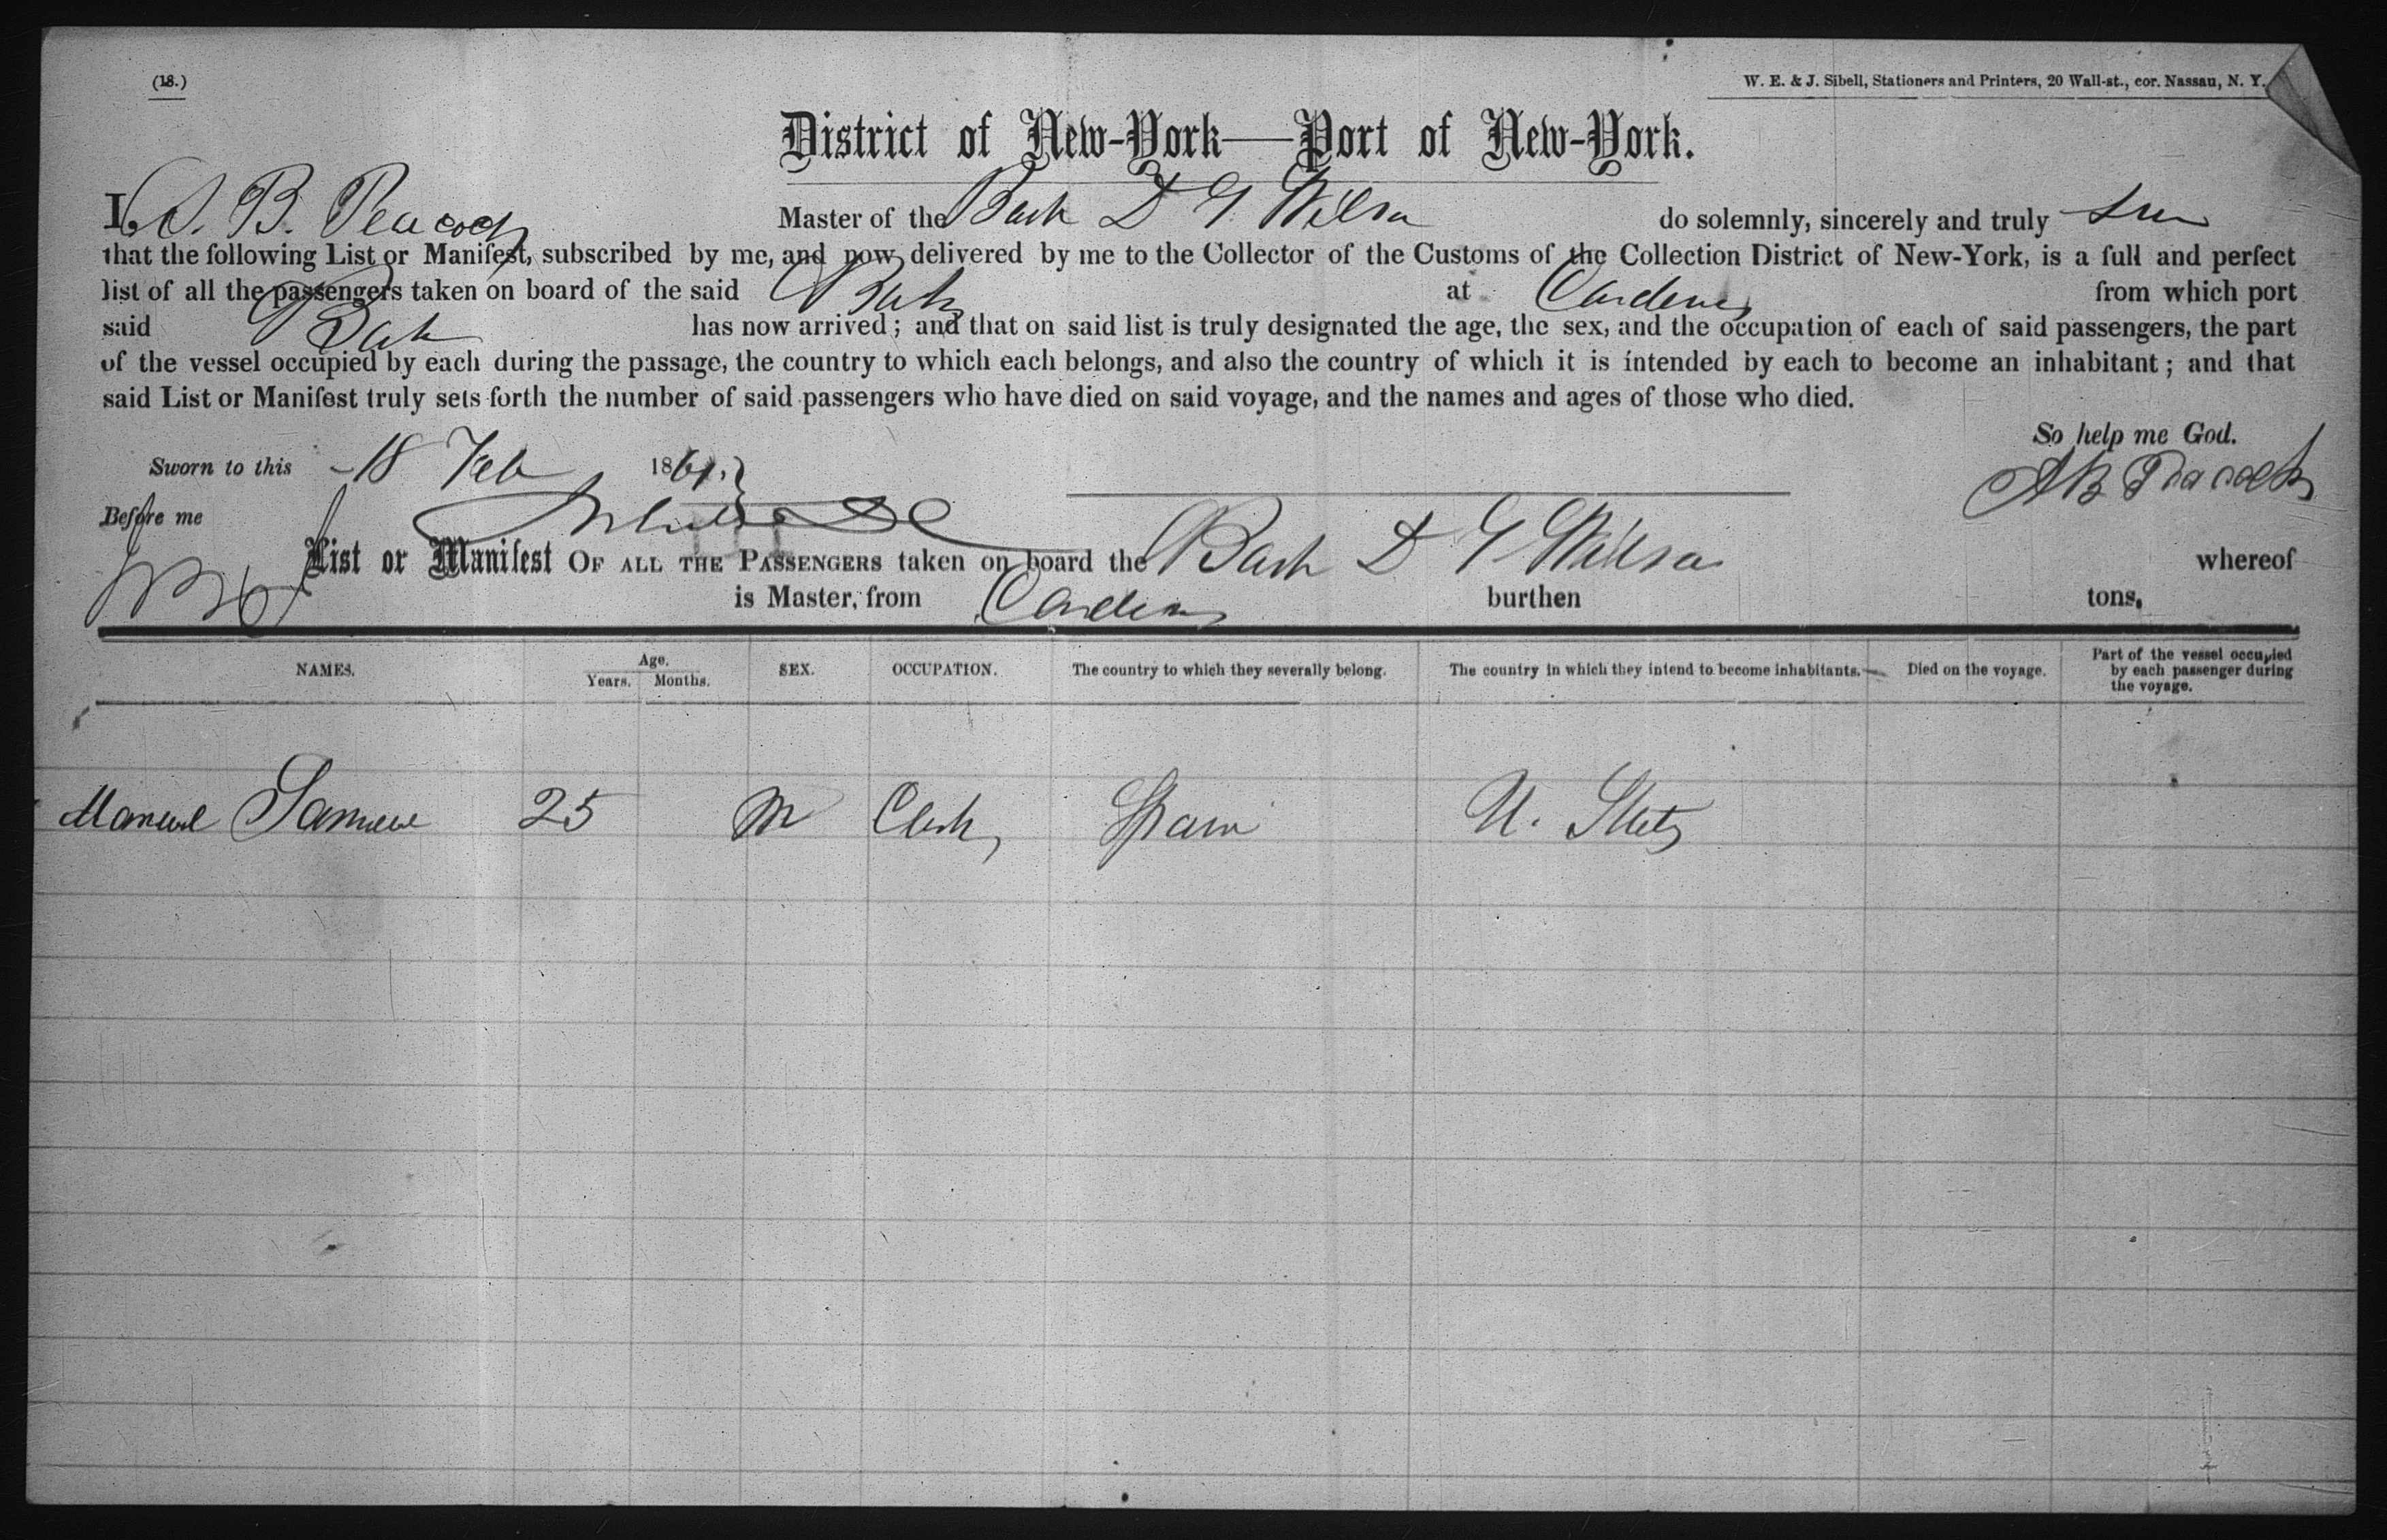 (18.)
W. E. & J. Sibell, Stationers and Printers, 20 Wall-st., cor. Nassau, N. Y.
District of New-York—Port of New-York.
I, A. B. Peacock Master of the Bark D G Wilson do solemnly, sincerely and truly
that the following List or Manifest, subscribed by me, and now delivered by me to the Collector of the Customs of the Collection District of New-York, is a full and perfect
list of all the passengers taken on board of the said Bark at Cardenas from which port
said Bark has now arrived; and that on said list is truly designated the age, the sex, and the occupation of each of said passengers, the part
of the vessel occupied by each during the passage, the country to which each belongs, and also the country of which it is intended by each to become an inhabitant; and that
said List or Manifest truly sets forth the number of said passengers who have died on said voyage, and the names and ages of those who died.
So help me God.
Sworn to this 18 Feb 1861. A B Peacock
Before me
List or Manifest OF ALL THE PASSENGERS taken on board the Bark D G Wilson whereof
is Master, from Cardenas burthen tons,
NAMES. Age. Years. Months. SEX. OCCUPATION. The country to which they severally belong. The country in which they intend to become inhabitants. Died on the voyage. Part of the vessel occupied by each passenger during the voyage.
Manuel 25 M Clerk Spain U. States